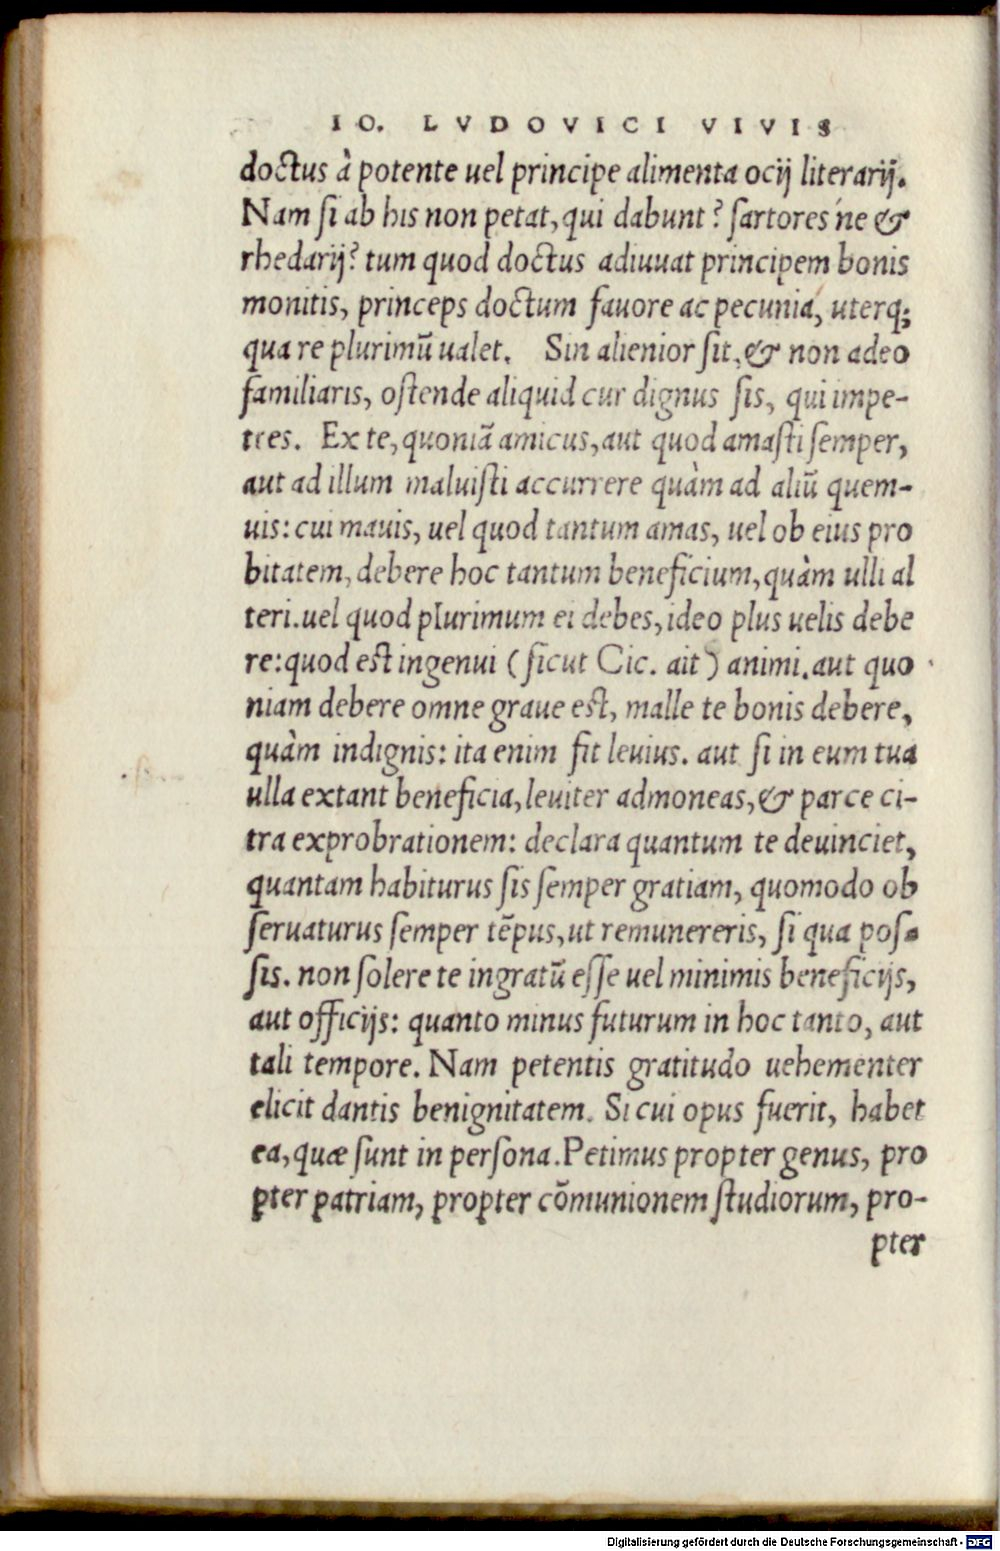 IO. LVDOVICI VIVIS
doctus à potente uel principe alimenta ocij literarij.
Nam ſi ab his non petat, qui dabunt? ſartores ne &
rhedarij? tum quod doctus adiuuat principem bonis
monitis, princeps doctum fauore ac pecunia, uterq;
qua re plurimũ ualet. Sin alienior ſit, & non adeo
familiaris, oſtende aliquid cur dignus ſis, qui impe-
tres. Ex te, quoniã amicus, aut quod amaſti ſemper,
aut ad illum maluiſti accurrere quàm ad aliũ quem-
uis: cui mauis, uel quod tantum amas, uel ob eius pro
bitatem, debere hoc tantum beneficium, quàm ulli al
teri. uel quod plurimum ei debes, ideo plus uelis debe
re: quod eſt ingenui (ſicut Cic. ait) animi. aut quo
niam debere omne graue eſt, malle te bonis debere,
quàm indignis: ita enim fit leuius. aut ſi in eum tua
ulla extant beneficia, leuiter admoneas, & parce ci-
tra exprobrationem: declara quantum te deuinciet,
quantam habiturus ſis ſemper gratiam, quomodo ob
ſeruaturus ſemper tẽpus, ut remunereris, ſi qua poſ-
ſis. non ſolere te ingratũ eſſe uel minimis beneficijs,
aut officijs: quanto minus futurum in hoc tanto, aut
tali tempore. Nam petentis gratitudo uehementer
elicit dantis benignitatem. Si cui opus fuerit, habet
ea, quæ ſunt in perſona. Petimus propter genus, pro
pter patriam, propter cõmunionem ſtudiorum, pro-
pter
Digitalisierung gefördert durch die Deutsche Forschungsgemeinschaft - DFG